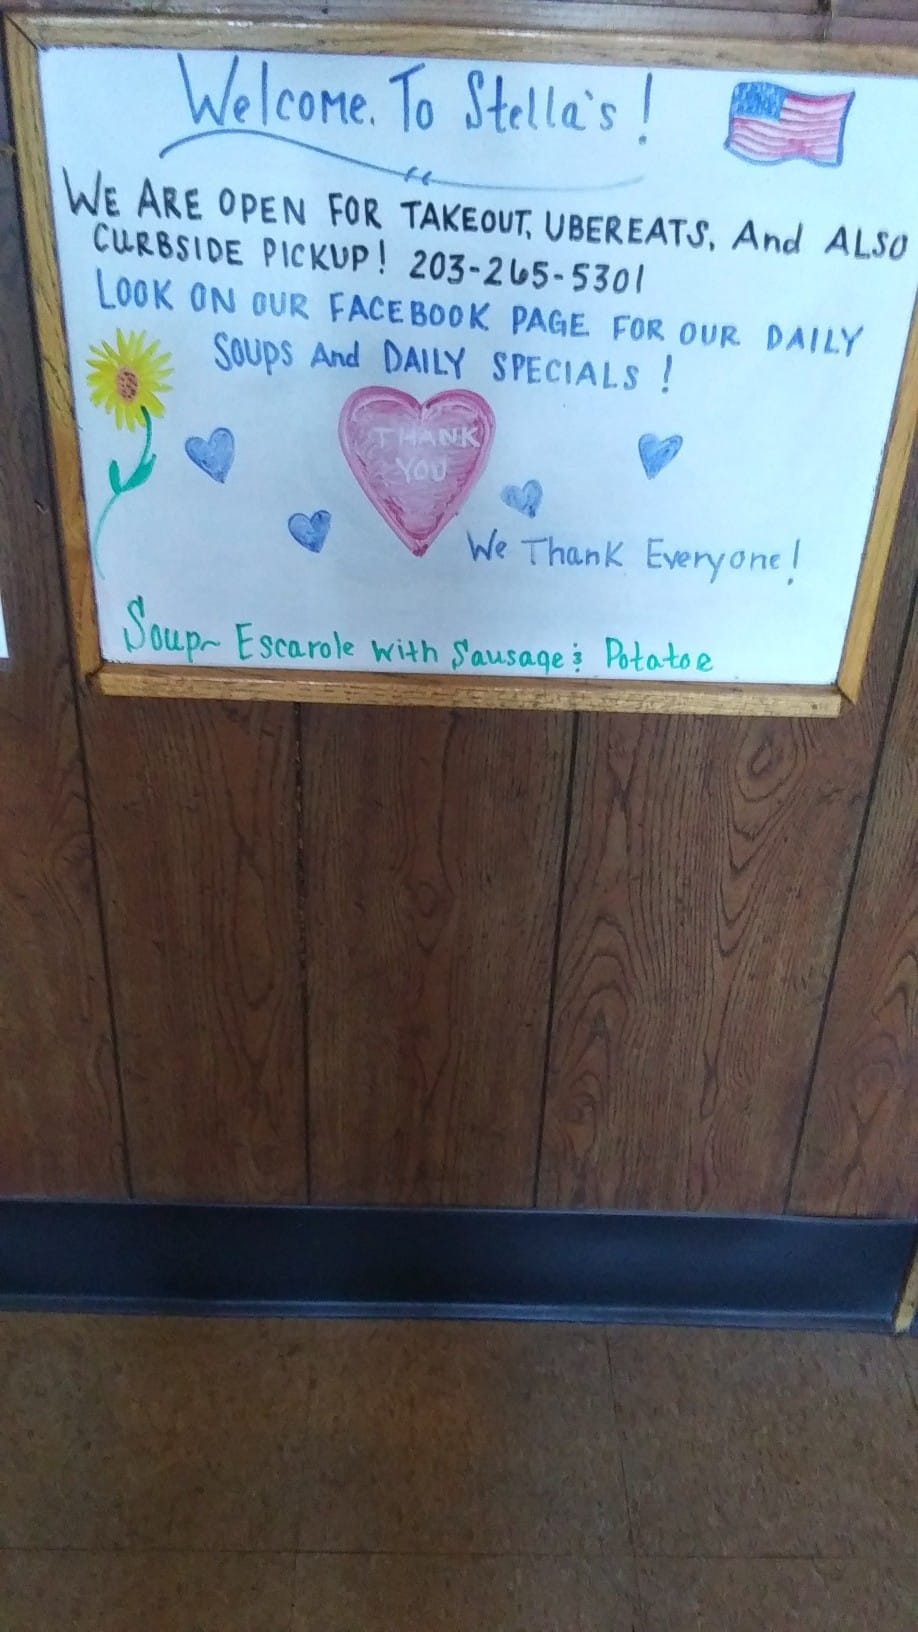 Welcome. To Stella's!
WE ARE OPEN FOR TAKEOUT, UBEREATS, And ALSO
CURBSIDE PICKUP! 203-265-5301
LOOK ON OUR FACEBOOK PAGE FOR OUR DAILY
SOUPS And DAILY SPECIALS!
THANK
YOU
We Thank Everyone!
Soup~ Escarole with Sausage & Potatoe